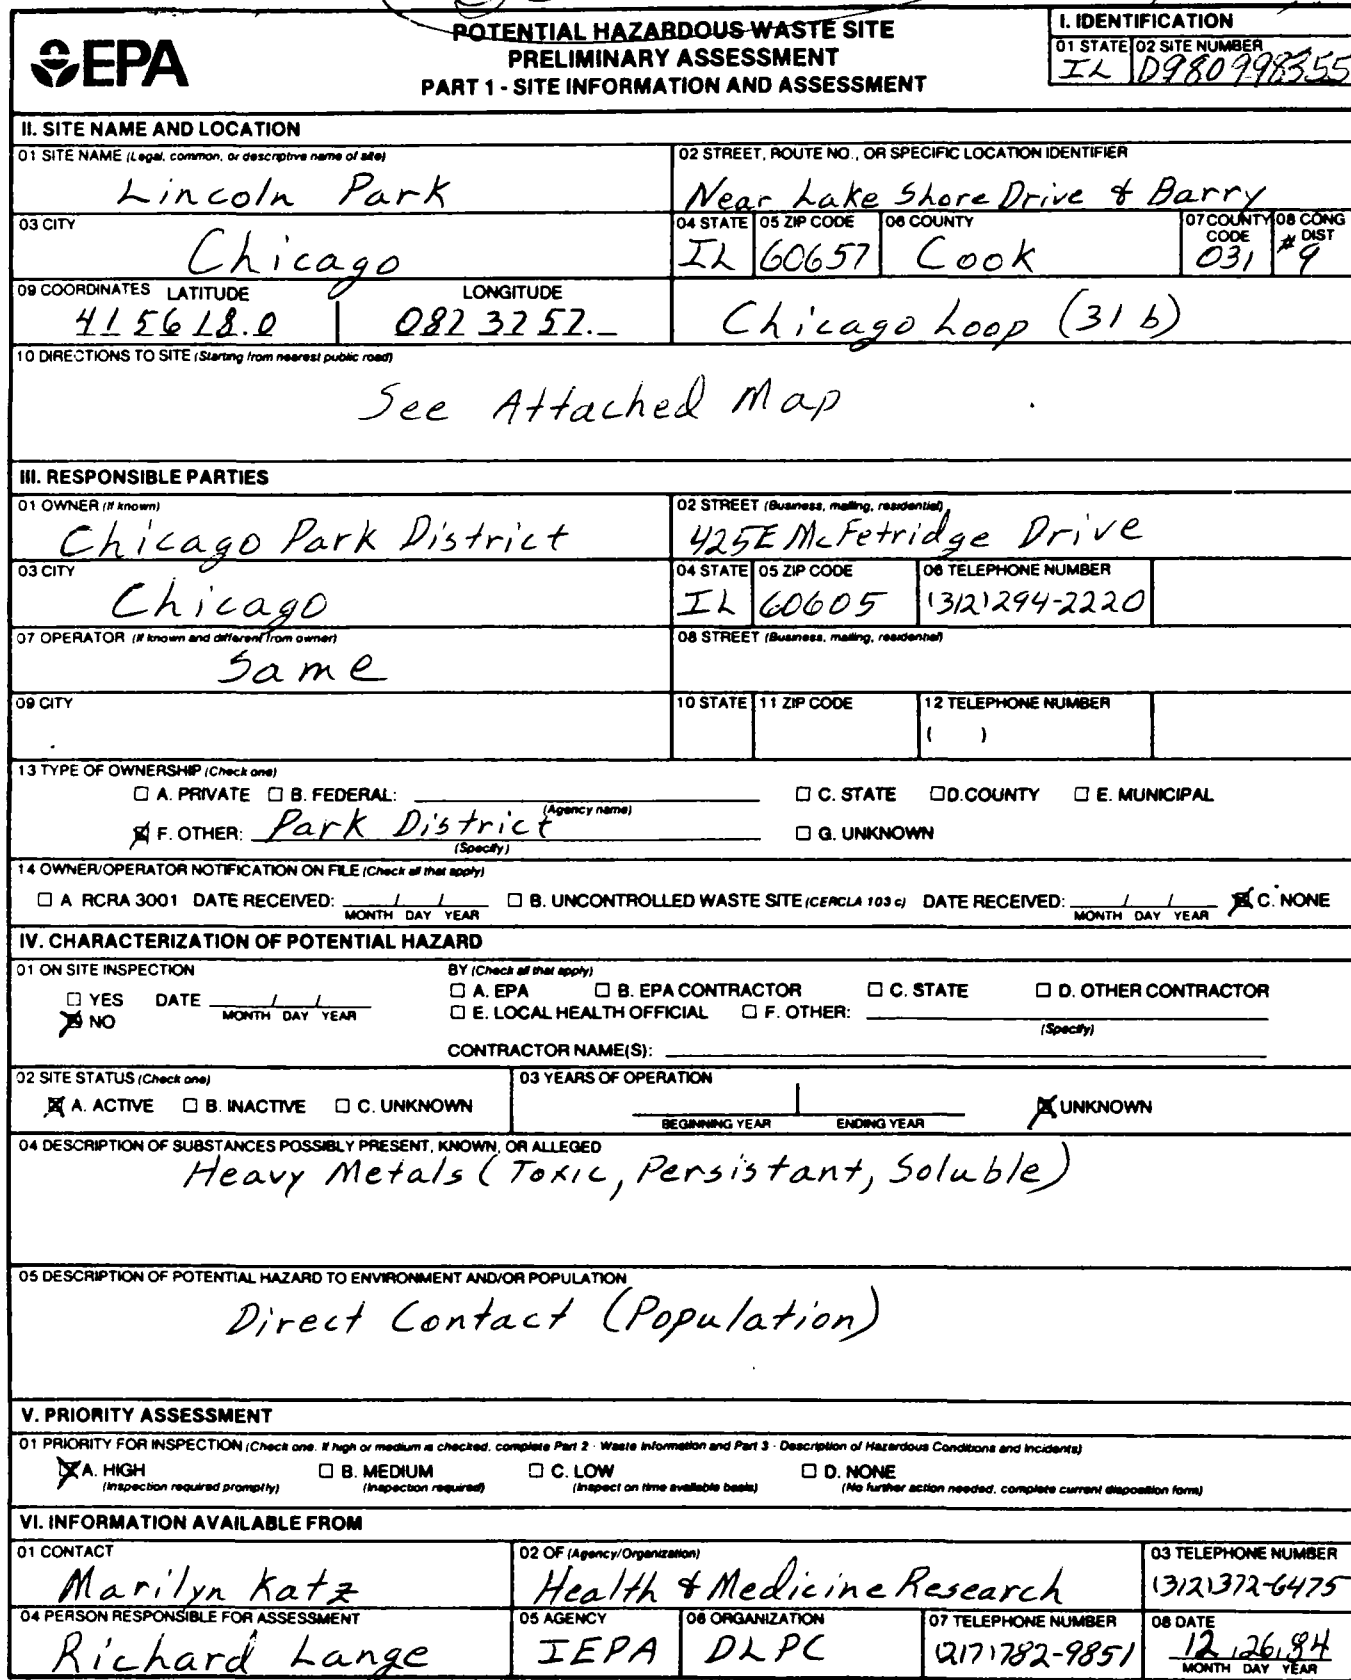 POTENTIAL HAZARDOUS WASTE SITE
PRELIMINARY ASSESSMENT
PART 1 - SITE INFORMATION AND ASSESSMENT
EPA
I. IDENTIFICATION
01 STATE 02 SITE NUMBER
IL D980998355
II. SITE NAME AND LOCATION
01 SITE NAME (Legal, common, or descriptive name of site)
Lincoln Park
02 STREET, ROUTE NO., OR SPECIFIC LOCATION IDENTIFIER
Near Lake Shore Drive & Barry
03 CITY
Chicago
04 STATE 05 ZIP CODE 06 COUNTY 07 COUNTY CODE 08 CONG DIST
IL 60657 Cook 031 #9
09 COORDINATES LATITUDE LONGITUDE
41 56 18.0 082 32 52._
Chicago Loop (31 b)
10 DIRECTIONS TO SITE (Starting from nearest public road)
See Attached Map
III. RESPONSIBLE PARTIES
01 OWNER (If known)
Chicago Park District
02 STREET (Business, mailing, residential)
425E McFetridge Drive
03 CITY
Chicago
04 STATE 05 ZIP CODE 06 TELEPHONE NUMBER
IL 60605 (312) 294-2220
07 OPERATOR (If known and different from owner)
Same
08 STREET (Business, mailing, residential)
09 CITY
10 STATE 11 ZIP CODE 12 TELEPHONE NUMBER
( )
13 TYPE OF OWNERSHIP (Check one)
☐ A. PRIVATE ☐ B. FEDERAL: ☐ C. STATE ☐ D. COUNTY ☐ E. MUNICIPAL
(Agency name)
☒ F. OTHER: Park District ☐ G. UNKNOWN
(Specify)
14 OWNER/OPERATOR NOTIFICATION ON FILE (Check all that apply)
☐ A RCRA 3001 DATE RECEIVED: / / ☐ B. UNCONTROLLED WASTE SITE (CERCLA 103 c) DATE RECEIVED: / / ☒ C. NONE
MONTH DAY YEAR MONTH DAY YEAR
IV. CHARACTERIZATION OF POTENTIAL HAZARD
01 ON SITE INSPECTION
☐ YES DATE / /
MONTH DAY YEAR
☒ NO
BY (Check all that apply)
☐ A. EPA ☐ B. EPA CONTRACTOR ☐ C. STATE ☐ D. OTHER CONTRACTOR
☐ E. LOCAL HEALTH OFFICIAL ☐ F. OTHER:
(Specify)
CONTRACTOR NAME(S):
02 SITE STATUS (Check one)
☒ A. ACTIVE ☐ B. INACTIVE ☐ C. UNKNOWN
03 YEARS OF OPERATION
BEGINNING YEAR ENDING YEAR ☒ UNKNOWN
04 DESCRIPTION OF SUBSTANCES POSSIBLY PRESENT, KNOWN, OR ALLEGED
Heavy Metals (Toxic, Persistant, Soluble)
05 DESCRIPTION OF POTENTIAL HAZARD TO ENVIRONMENT AND/OR POPULATION
Direct Contact (Population)
V. PRIORITY ASSESSMENT
01 PRIORITY FOR INSPECTION (Check one. If high or medium is checked, complete Part 2 - Waste Information and Part 3 - Description of Hazardous Conditions and Incidents)
☒ A. HIGH ☐ B. MEDIUM ☐ C. LOW ☐ D. NONE
(Inspection required promptly) (Inspection required) (Inspect on time available basis) (No further action needed, complete current disposition form)
VI. INFORMATION AVAILABLE FROM
01 CONTACT
Marilyn Katz
02 OF (Agency/Organization)
Health & Medicine Research
03 TELEPHONE NUMBER
(312) 372-6475
04 PERSON RESPONSIBLE FOR ASSESSMENT
Richard Lange
05 AGENCY
IEPA
06 ORGANIZATION
DLPC
07 TELEPHONE NUMBER
(217) 782-9851
08 DATE
12,26,84
MONTH DAY YEAR